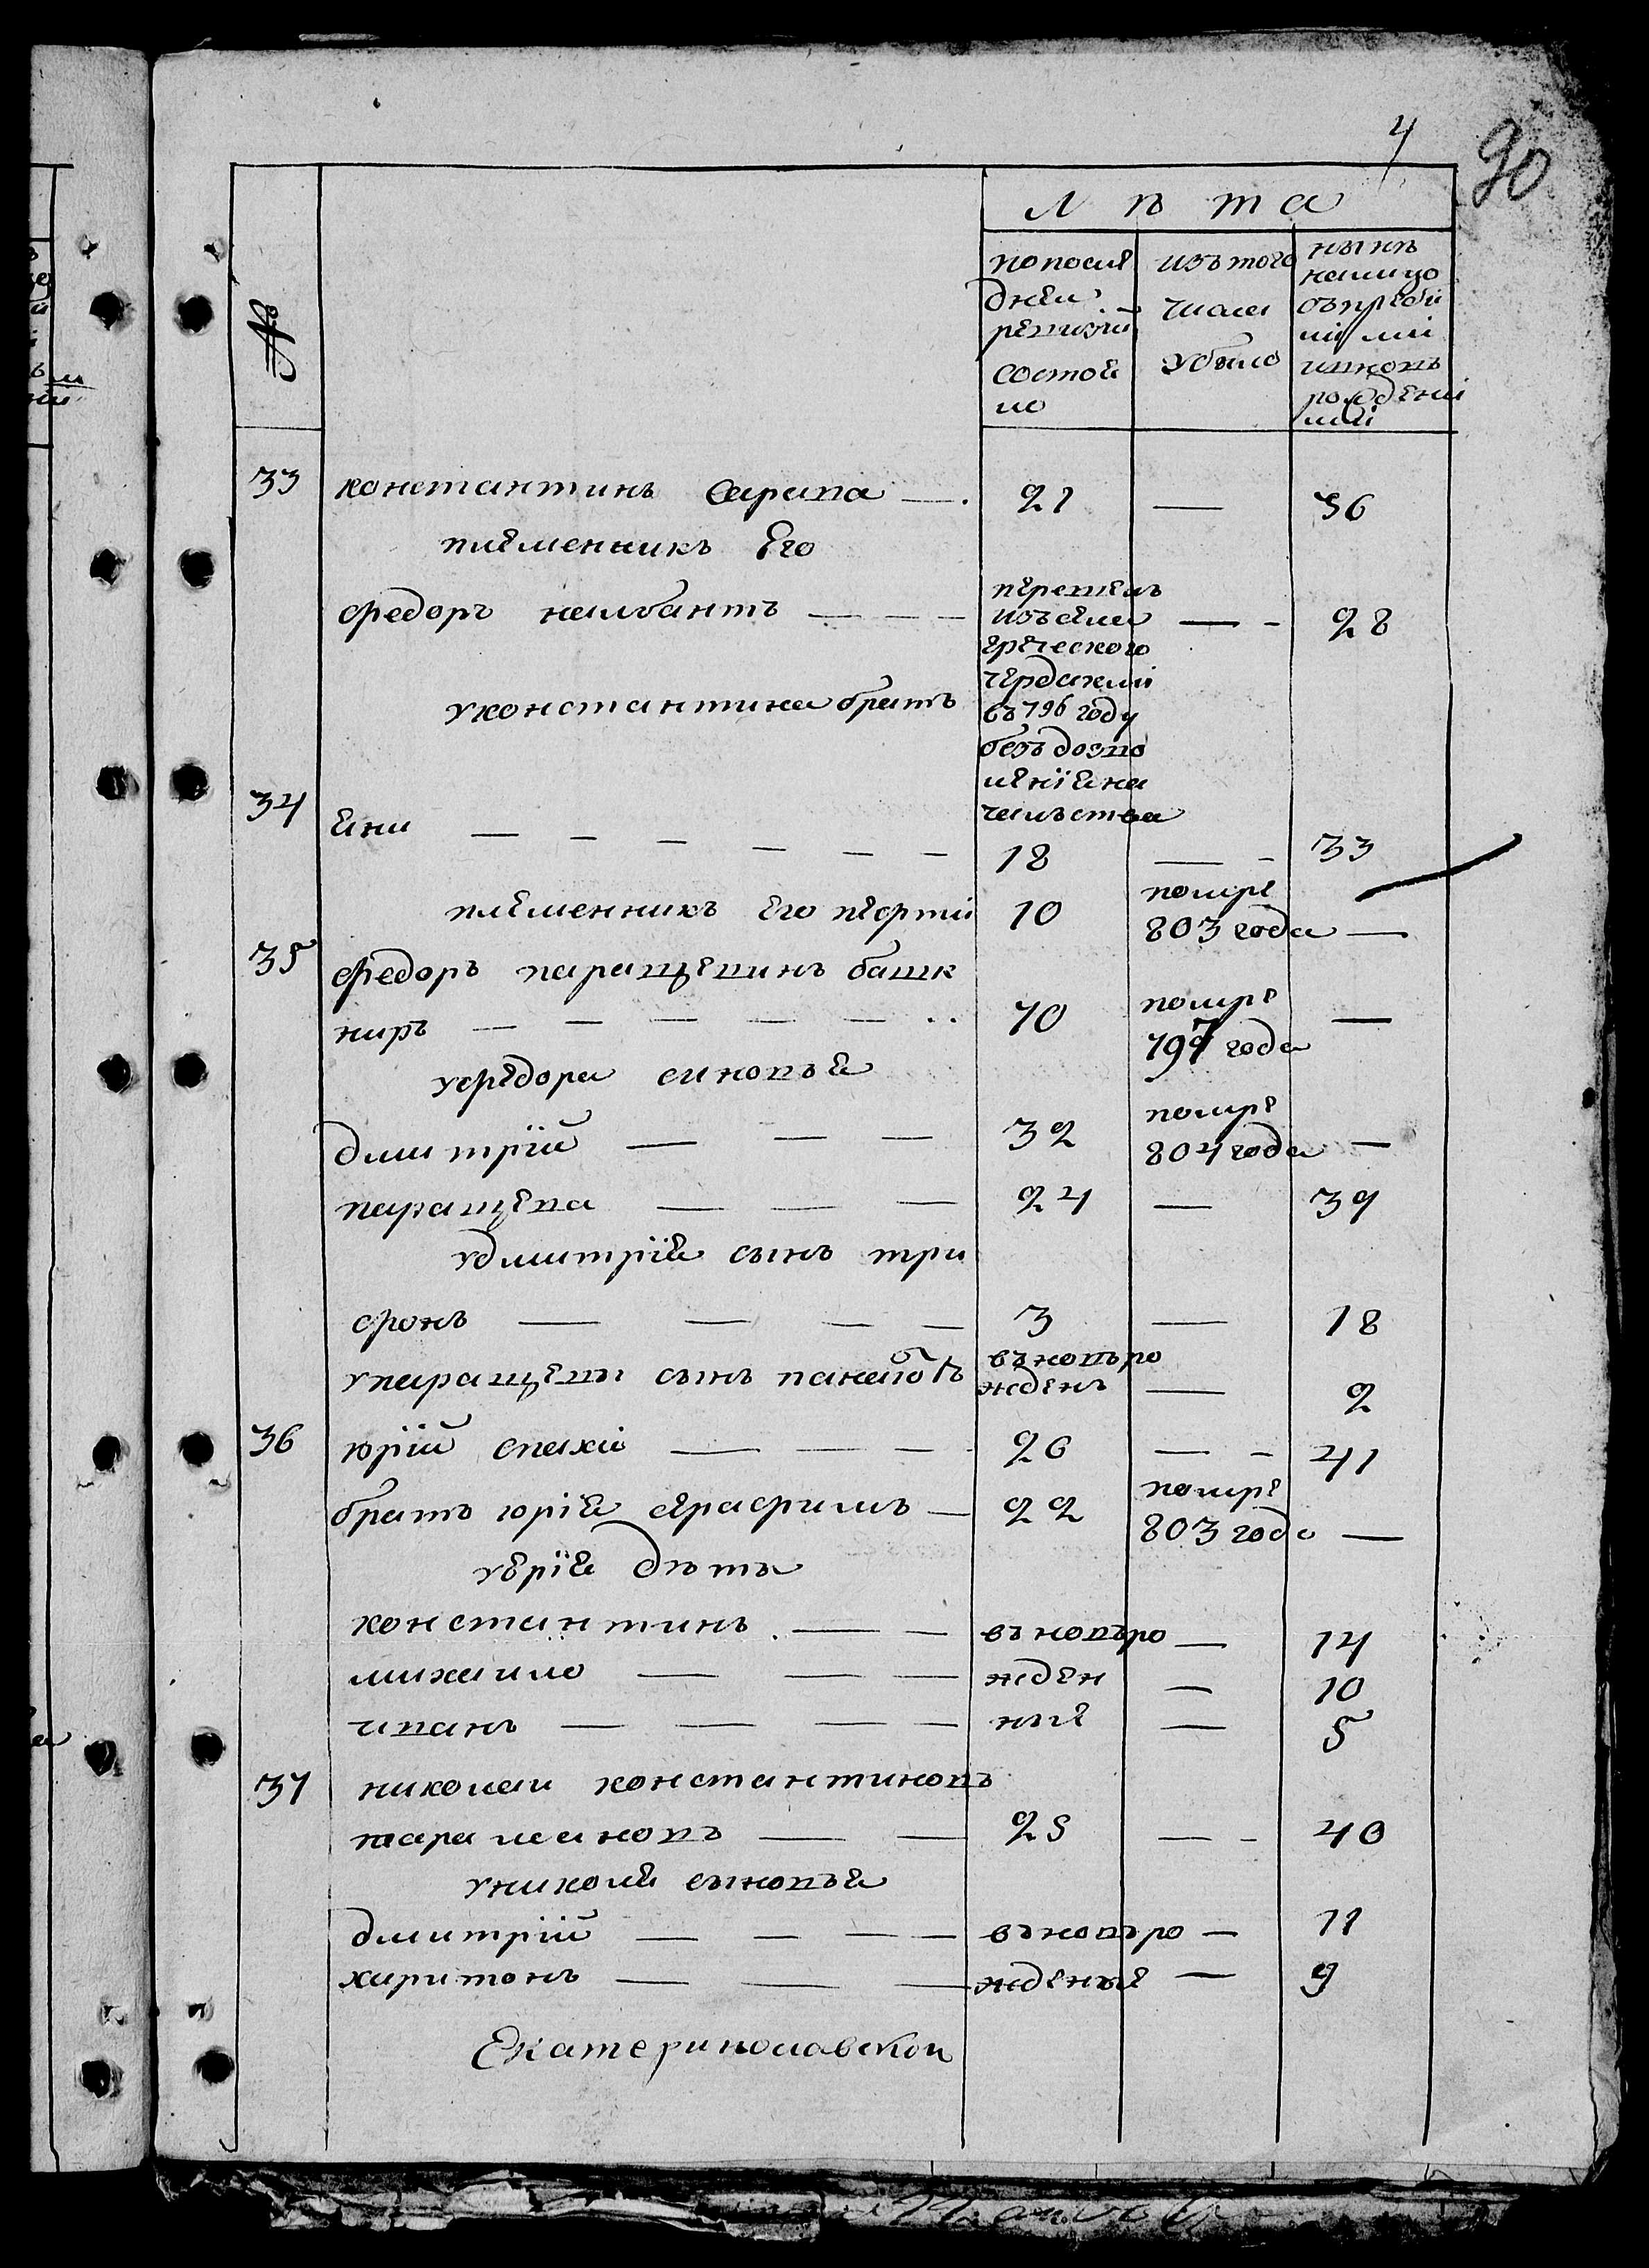 4
90
№
лѣта
по после
дней
ревизiи
состоя
ло
изъ того
числа
убыло
нынѣ
налицо
съ прибы
лы ми
и вновь
рожденны
ми
33 константинъ сарива — 21 — 36
племенникъ Его
федоръ налбантъ — — — перешелъ
изъ села — - 28
греческого
чердакли
уконстантина братъ въ 796 году
безъ дозво
ленiе на
чальства
34 яни — — — — — — 18 — - 33
племенникъ Его пефтий 10 помре
803 года —
35 федоръ паращевинъ башк
ниръ — — — — — 70 помре
797 года —
уфедора сыновья
дмитрiй — — — 32 помре
804 года —
паращева — — — 24 — 39
удмитрiя сынъ три
фонъ — — — — 3 — 18
упаращевы сынъ панаiотъ въновъро
жденъ — 2
36 юрiй спахiо — — — 26 — - 41
братъ юрiя ерафимъ — 22 помре
803 года —
уюрiя дѣти
константинъ — — въ новъро — 14
михаило — — — жден — 10
иванъ — — — — ные — 5
37 николаи константиновъ
тарамановъ — — 25 — - 40
униколая сыновья
дмитрiй — — — — въновъро — 11
харитонъ — — — жденые — 9
Екатеринославской